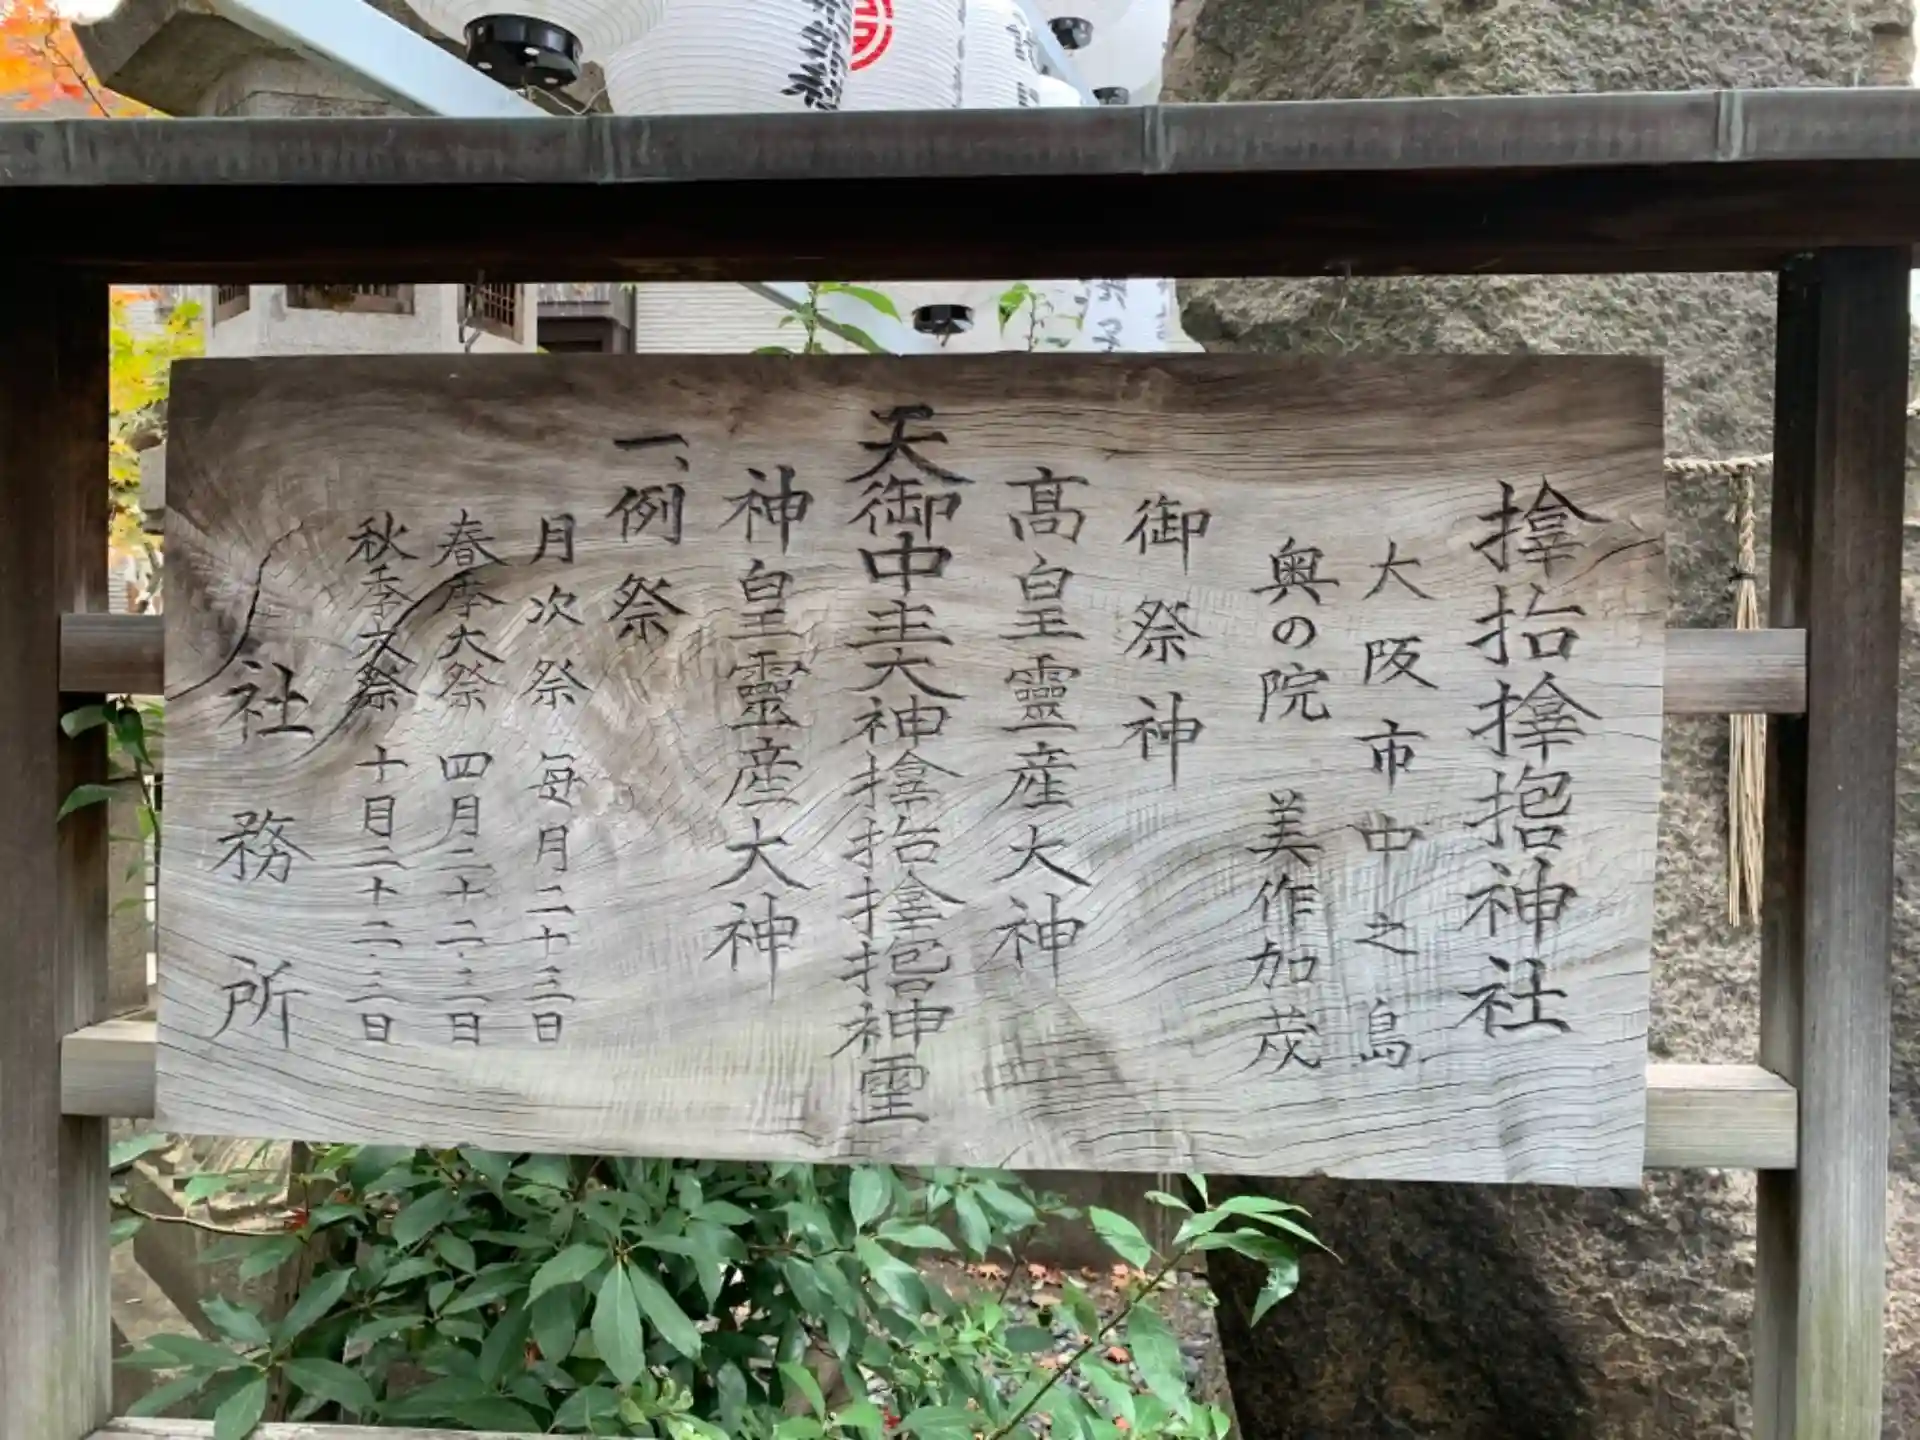 𪮷𫝼𪮷𫝓神社
大阪市中之島
奥の院 美作加茂
御祭神
髙皇靈産大神
天御中主大神𪮷𫝼𪮷𫝓神霊
神皇靈産大神
一、例祭
月次祭 毎月二十三日
春季大祭 四月二十二・三日
秋季大祭 十月二十二・三日
社務所